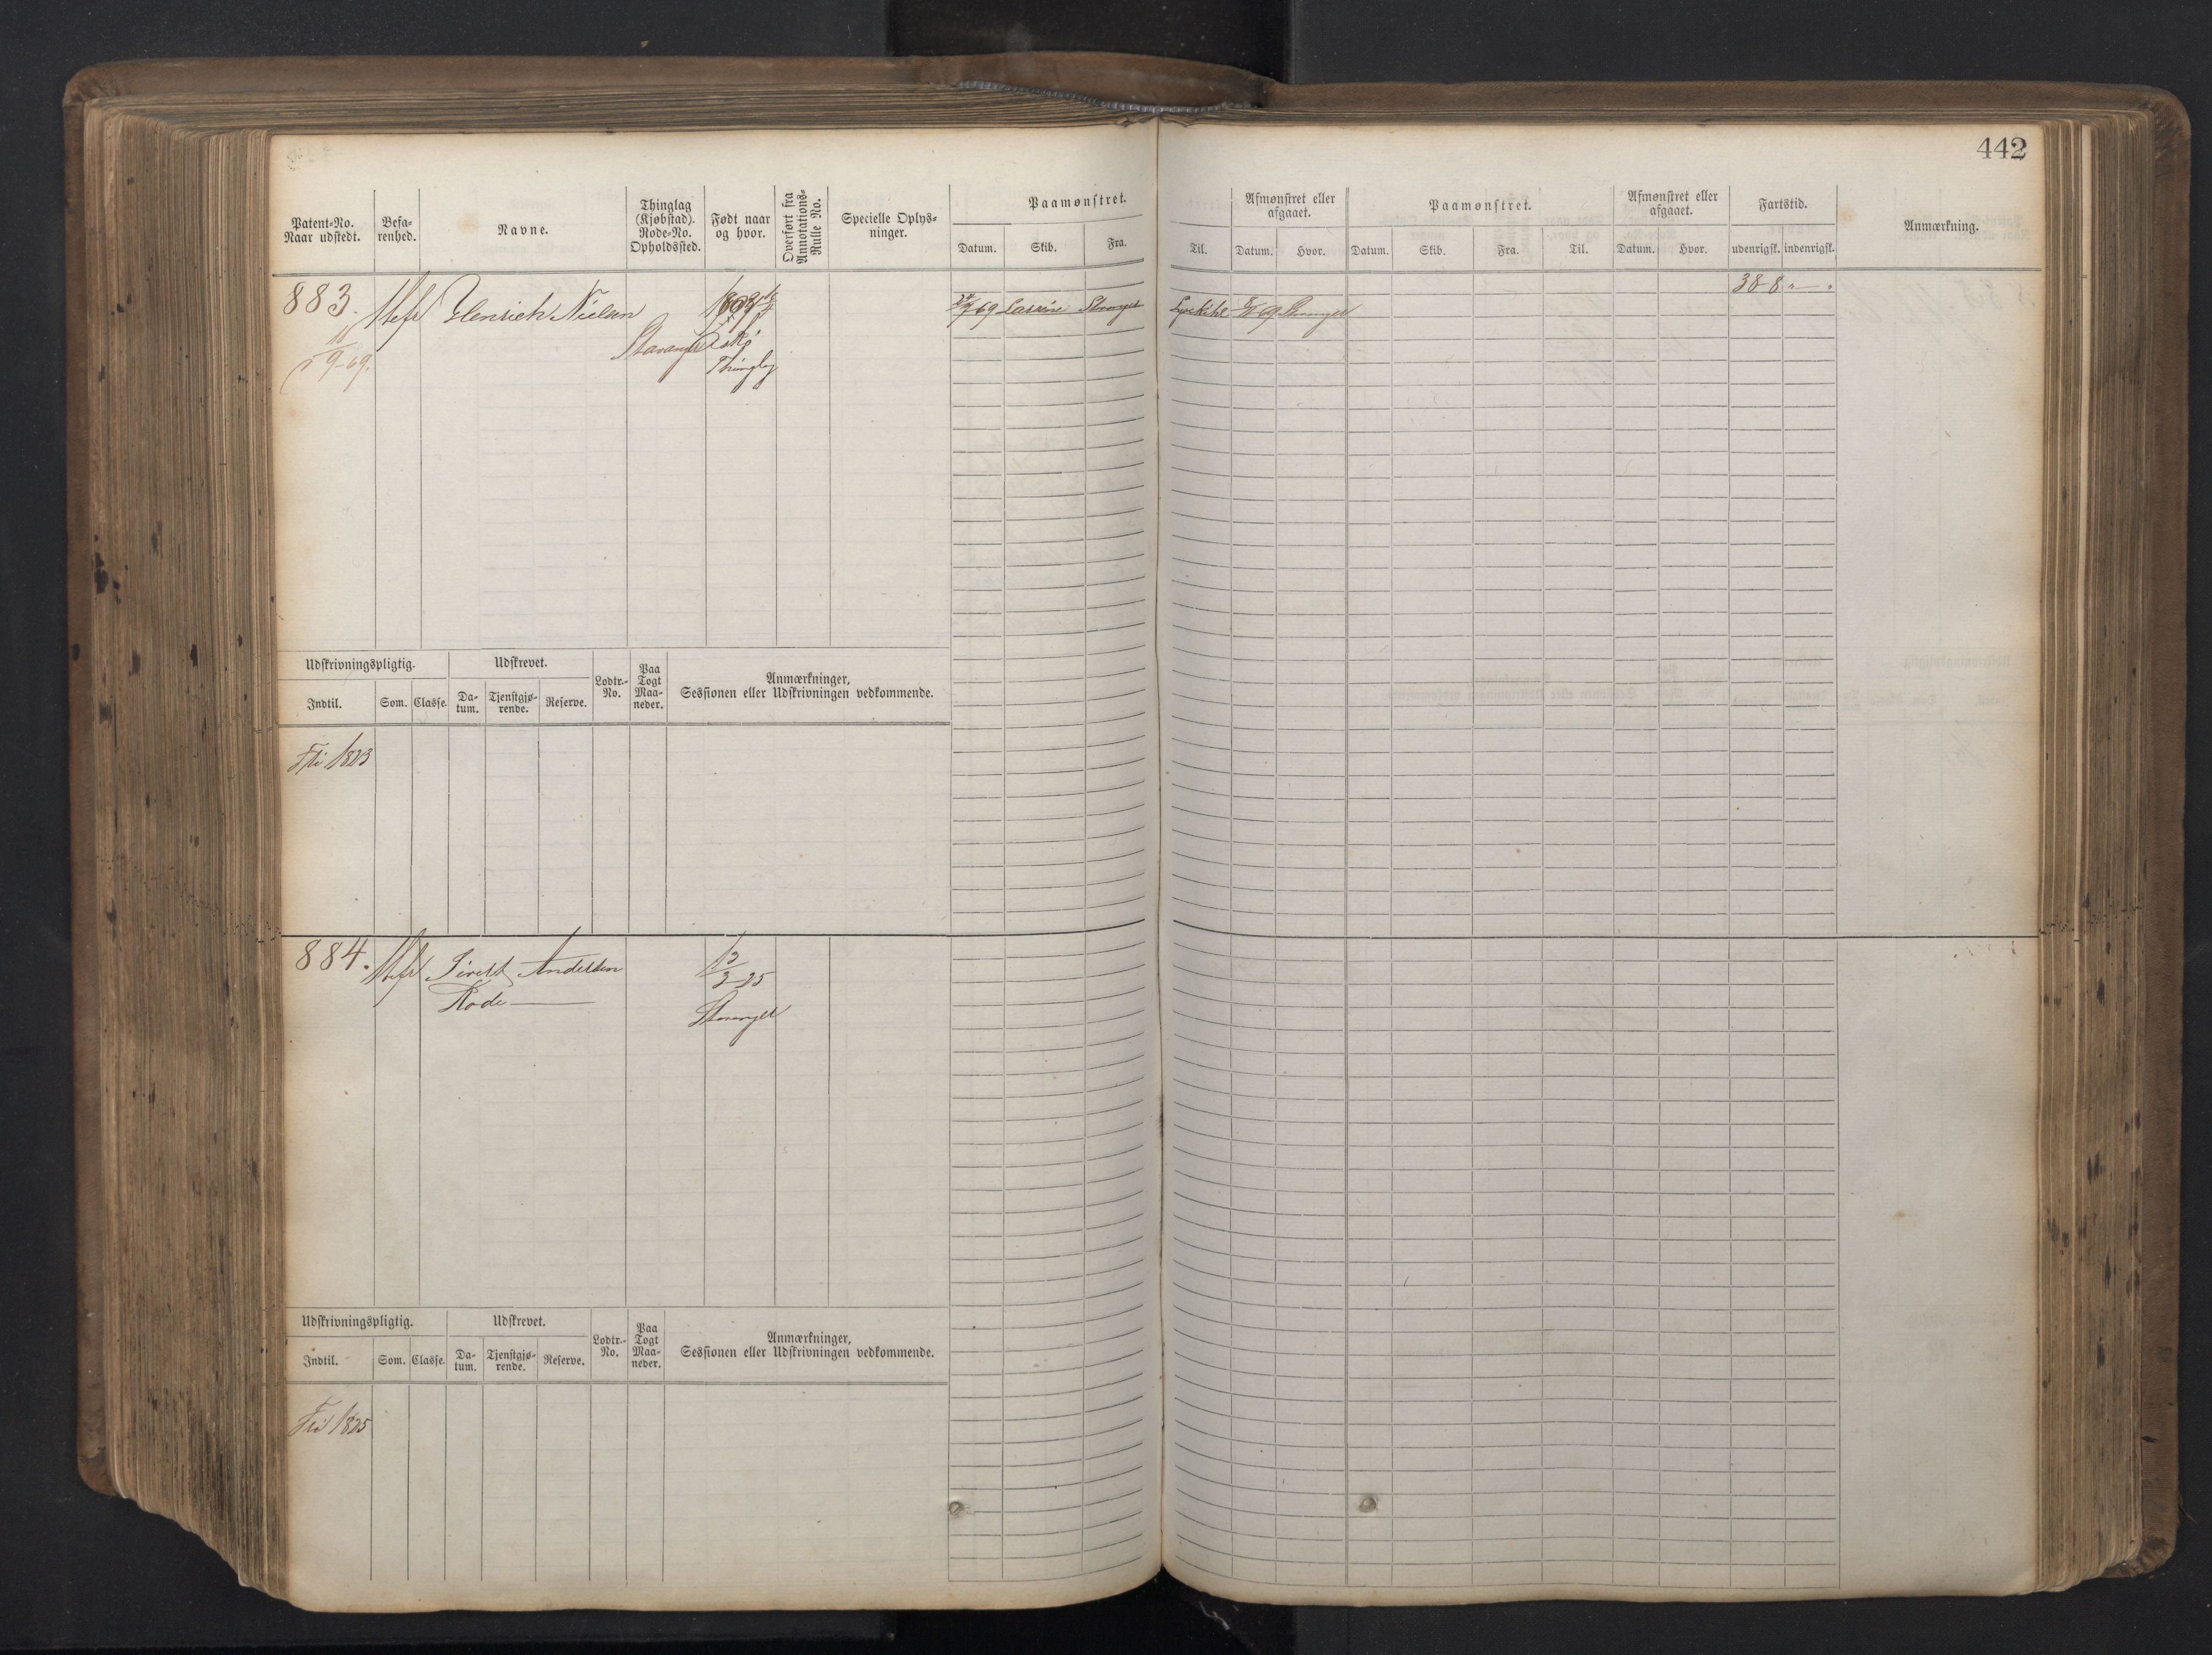 442
Patent-No.
Naar udstedt.
Befa-
renhed.
Navne.
Thinglag
(Kjøbstad).
Rode-No.
Opholdssted.
Født naar
og hvor.
Overført fra
Annotations-
Rulle No.
Specielle Oplys-
ninger.
Paamønstret.
Datum. Skib. Fra.
Til.
Afmønstret eller
afgaaet.
Datum. Hvor.
Paamønstret.
Datum. Skib. Fra. Til.
Afmønstret eller
afgaaet.
Datum. Hvor.
Fartstid.
udenrigsk. indenrigsk.
Anmærkning.
38-8
883. Henrich Nielsen
69 Stavanger
9-69. Stavanger
Thinglag
Udskrivningspligtig.
Indtil. Som. Classe.
Udskrevet.
Da-
tum.
Tjenstgjø-
rende.
Reserve.
Lodtr.-
No.
Paa
Togt
Maa-
neder.
Anmærkninger,
Sessionen eller Udskrivningen vedkommende.
1823
884. Sivert Andersen
Rode
3-25
Stavanger
Udskrivningspligtig.
Indtil. Som. Classe.
Udskrevet.
Da-
tum.
Tjenstgjø-
rende.
Reserve.
Lodtr.-
No.
Paa
Togt
Maa-
neder.
Anmærkninger,
Sessionen eller Udskrivningen vedkommende.
1825